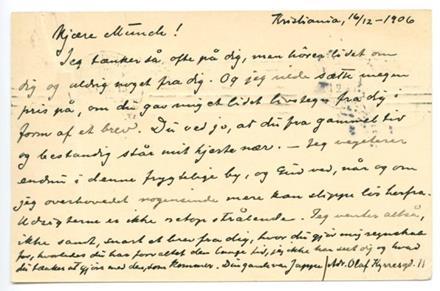 Kristiania, 14/12-1906
Kjære Munch!
Jeg tænker så ofte på dig, men hører lidet om
dig og aldrig noget fra dig. Og jeg vilde sætte megen
pris på, om du gav mig et lidet livstegn fra dig i
form af et brev. Du ved jo, at du fra gammel tid
og bestandig står mit hjerte nær. — Jeg vegeterer
endnu i denne frygtelige by, og Gud ved, når og om
jeg overhovedet nogensinde mere kan slippe løs herfra.
Udsigterne er ikke netop strålende. Jeg venter altså,
ikke sandt, snart et brev fra dig, hvor du gjør mig regnskab
for, hvorledes du har for det den lange tid, jeg ikke har set dig og hvad
du tænker at gjøre med des, som kommer. Din gamle ven Jappe
Adr. Olaf Kyrresgd. 11